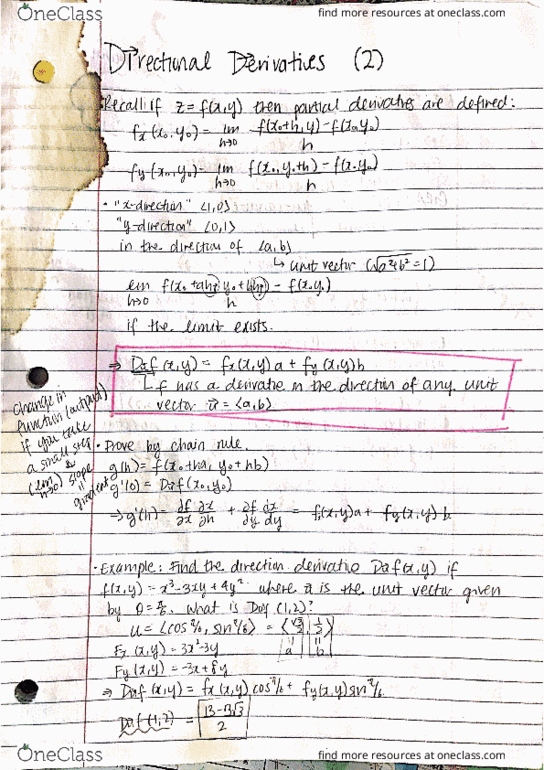 OneClass
find more resources at oneclass.com
Directional Derivatives (2)
Recall: if z = f(x,y) then partial derivates are defined:
fx(x₀,y₀) = lim h→0 f(x₀+h,y)-f(x₀,y₀) / h
fy(x₀,y₀) = lim h→0 f(x₀,y₀+h)-f(x₀,y₀) / h
• "x-direction" <1,0>
"y-direction" <0,1>
in the direction of <a,b>
↳ unit vector (√a²+b²=1)
lim h→0 f(x₀+ah, y₀+bh) - f(x₀,y₀) / h
if the limit exists.
⇒ Dūf(x,y) = fx(x,y)a + fy(x,y)b
f has a derivative in the direction of any unit
vector ū = <a,b>
change in
function (output)
if you take
a small step
(lim h→0) slope
=
gradient
• Prove by chain rule.
g(h) = f(x₀+ha, y₀+hb)
g'(0) = Dūf(x₀,y₀)
→ g'(h) = ∂f/∂x ∂x/∂h + ∂f/∂y dx/dy = fx(x,y)a + fy(x,y)b
• Example: Find the direction derivative Dūf(x,y) if
f(x,y) = x³-3xy+4y² where ū is the unit vector given
by θ=π/6. What is Duf(1,2)?
u = <cos π/6, sin π/6> = <√3/2, 1/2>
" "
a b
Fx(x,y) = 3x²-3y
Fy(x,y) = -3x+8y
⇒ Dūf(x,y) = fx(x,y)cos π/6 + fy(x,y)sin π/6
Dūf(1,2) = 13-3√3 / 2
OneClass
find more resources at oneclass.com